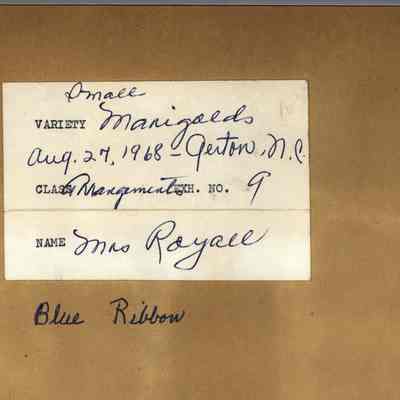 Small
VARIETY Marigolds
Aug. 27, 1968 – Gerton, N.C.
CLASS Arrangements EXH. NO. 9
NAME Mrs Royall
Blue Ribbon